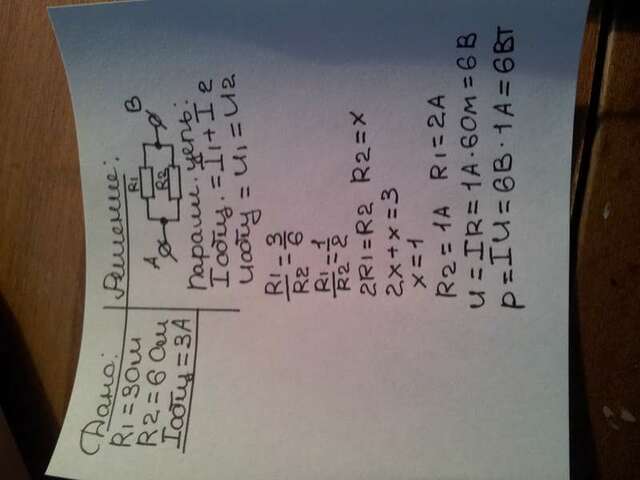 Дано:
R1=3Ом
R2=6 Ом
Iобщ=3А
Решение:
A
R1
R2
B
Паралл. цепь:
Iобщ.=I1+I2
Uобщ=U1=U2
R1/R2=3/6
R1/R2=1/2
2R1=R2 R2=x
2x+x=3
x=1
R2=1А R1=2А
U=IR=1А·6Ом=6В
P=IU=6В·1А=6Вт